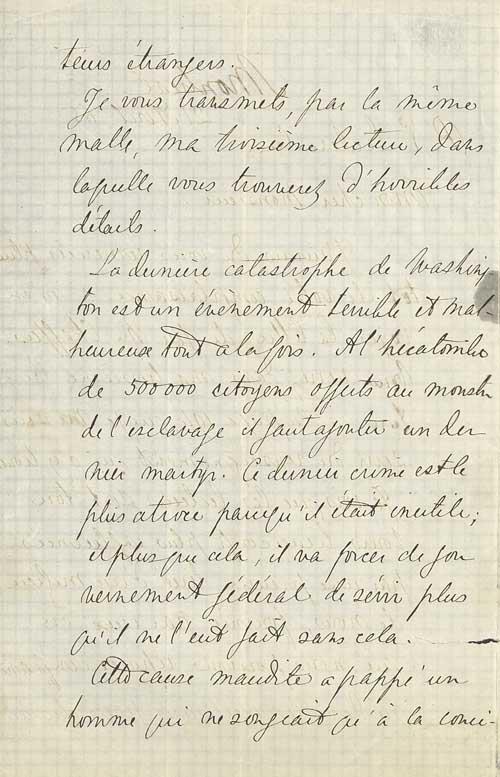 teurs étrangers.
Je vous transmets, par la même
malle, ma troisième lecture, dans
laquelle vous trouverez d'horribles
détails.
La dernière catastrophe de Washing-
ton est un évènement terrible et mal-
heureuse tout a la fois. A l'hécatombe
de 500000 citoyens offerts au monstre
de l'esclavage il faut ajouter un der
nier martyr. Ce dernier crime est le
plus atroce parcequ'il était inutile;
et plus que cela, il va forcer de gou
vernement fédéral de sévir plus
qu'il ne l'eût fait sans cela.
Cette cause maudite a frappé un
homme qui ne songeait qu'à la conci-